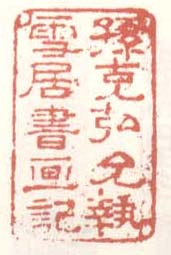 孫克弘允執
雪居書画記